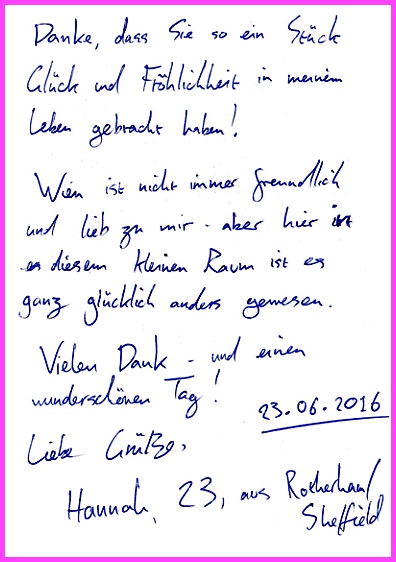 Danke, dass Sie so ein Stück
Glück und Fröhlichkeit in meinem
Leben gebracht haben!
Wien ist nicht immer freundlich
und lieb zu mir - aber hier in
diesem kleinen Raum ist es
ganz glücklich anders gewesen.
Vielen Dank - und einen
wunderschönen Tag!
23.06.2016
Liebe Grüße,
Hannah, 23, aus Rotherham/
Sheffield